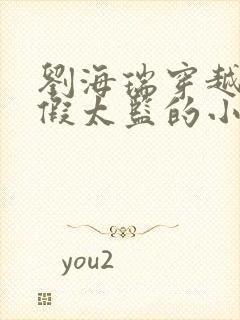 劉海瑞穿越
假太監的小
you2